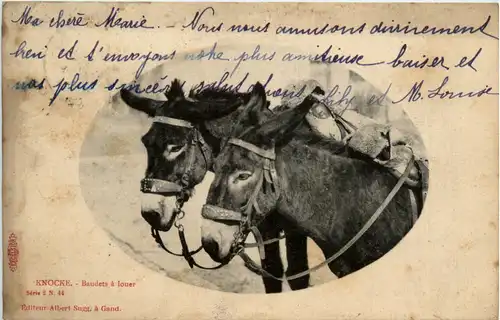 Ma chère Marie. - Nous nous amusons divinement
ici et t'envoyons notre plus amitieuse baiser et
nos plus sincères salutations Lily et M. Louise
KNOCKE. - Baudets à louer
Série 2 N. 44
Editeur Albert Sugg, à Gand.